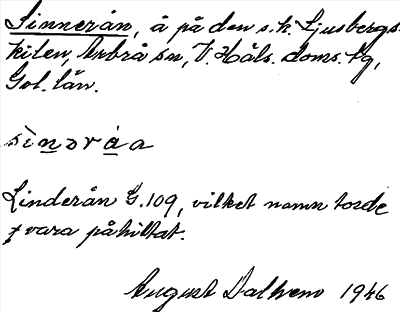 Sinnerån, å på den s.k. Ljusbergs-
kilen, Arbrå sn, V. Häls. doms. tg,
Gvl. län.
sìnərå̀a
Linderån G. 109, vilket namn torde
vara påhittat.
August Dalhem 1946